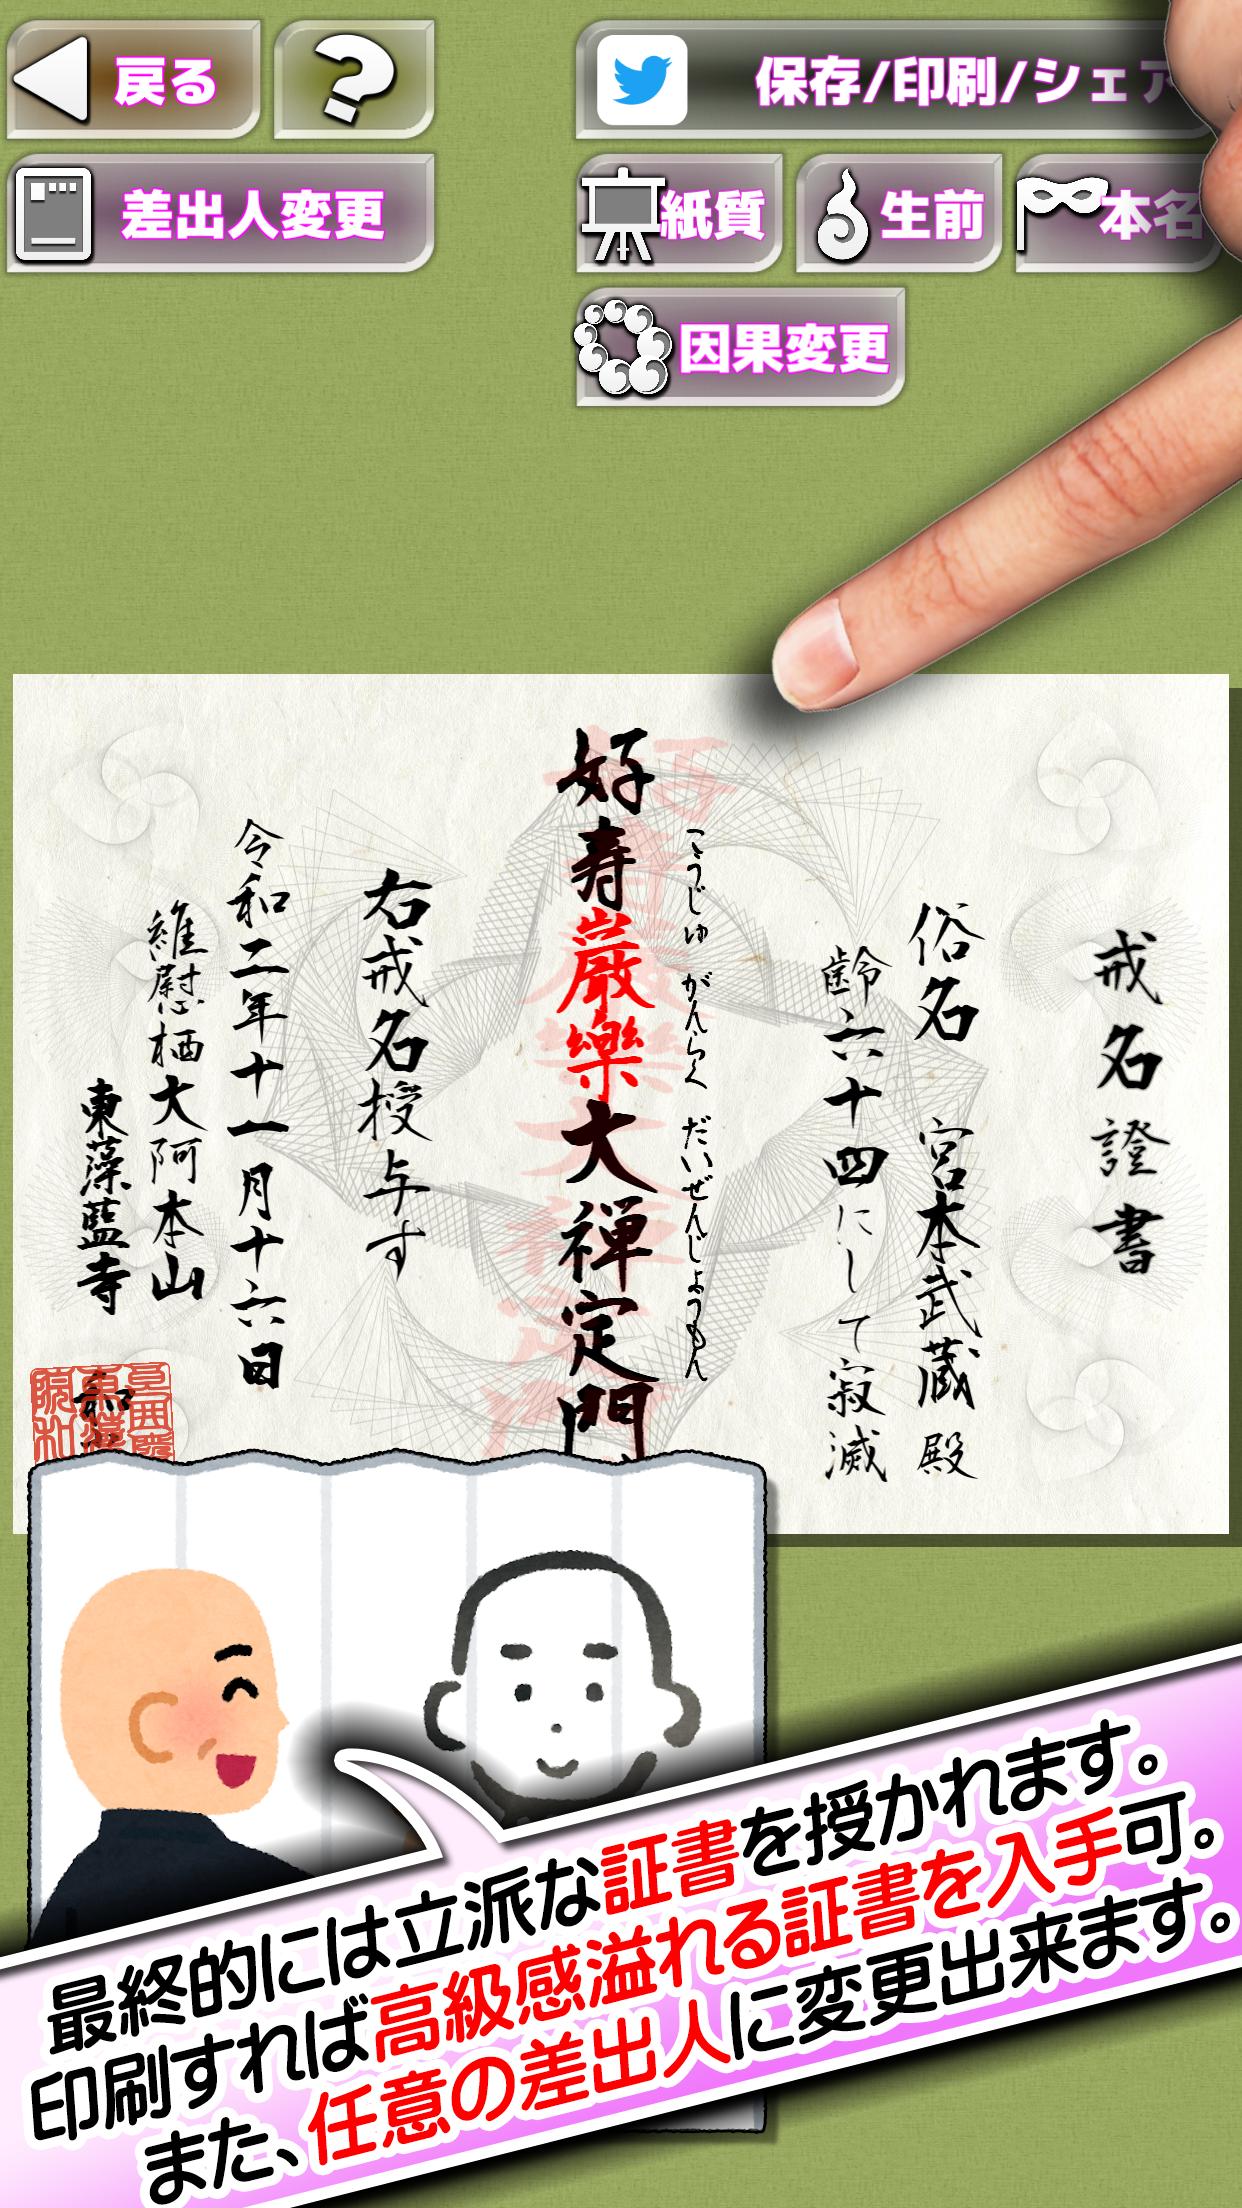 戻る
?
保存/印刷/シェア
差出人変更
紙質
生前
本名
因果変更
戒名證書
俗名 宮本武蔵 殿
齢六十四にして寂滅
こうじゅ がんらく だいぜんじょうもん
好寿巌樂大禅定門
右戒名授与す
令和二年十一月十六日
維慰栖大阿本山
東藻藍寺
最終的には立派な証書を授かれます。
印刷すれば高級感溢れる証書を入手可。
また、任意の差出人に変更出来ます。